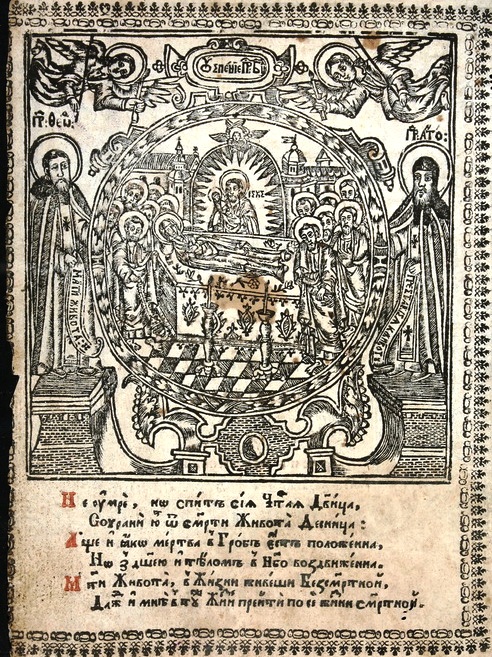 ОУСПЕНІЕ ПР: БЦЫ
ПР: ѲЕѠ:
ПР: АТО:
ІС ХС
МАТИ ЖИВОТА
Не оумре, но спитъ сїѧ Чⷭ҇таѧ Дв҃ица,
Сохрани ю ѿ смерти Живота Десница:
Аще и ꙗко мертва в Гробѣ єстъ положенна,
Но з дш҃ею и тѣломъ в Нб҃о воздвиженна.
Мт҃и Живота, в Жизни живеши Безсмертной,
Даждъ и мнѣ в ту Жизнь прейти по сей жизни смертной.